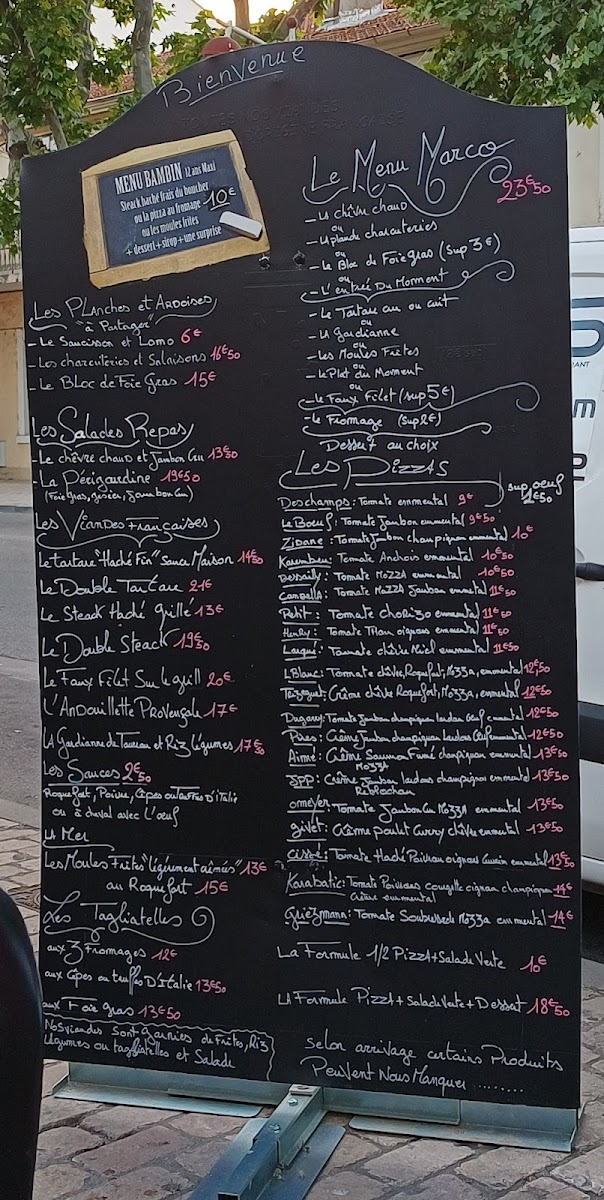 Bienvenue
MENU BAMBIN 12 ans Maxi
Steack haché frais du boucher
ou la pizza au fromage 10€
ou les moules frites
+ dessert + sirop + une surprise
Les Planches et Ardoises
"à Partager"
- Le Saucisson et Lomo 6€
- Les charcuteries et Salaisons 16€50
- Le Bloc de Foie Gras 15€
Les Salades Repas
- Le chèvre chaud et Jambon Cru 13€50
- La Périgardine 19€50
(Foie gras, gésier, Jambon Cru)
Les Viandes Françaises
Le tartare "Haché Fin" sauce Maison 14€50
Le Double Tartare 21€
Le Steack Haché Grillé 13€
Le Double Steack 19€50
Le Faux Filet Sur le grill 20€
L'Andouillette Provençale 17€
La Gardianne de Taureau et Riz légumes 17€50
Les Sauces 2€50
Roquefort, Poivre, Cèpes ou Truffes D'Italie
ou à cheval avec L'oeuf
La Mer
Les Moules Frites "légèrement aimés" 13€
au Roquefort 15€
Les Tagliatelles
aux 3 Fromages 12€
aux Cèpes ou truffes D'Italie 13€50
aux Foie Gras 13€50
Nos viandes sont garnies de Frites, Riz
Légumes ou tagliatelles et Salade
Le Menu Marco
23€50
- Le chèvre chaud
ou
- La planche charcuteries
ou
- Le Bloc de Foie Gras (Sup 3€)
ou
- L'entrée Du Moment
- Le Tartare cru ou cuit
ou
- La Gardianne
ou
- Les Moules Frites
ou
- Le Plat du Moment
ou
- Le Faux Filet (sup 5€)
- Le Fromage (Sup 2€)
Dessert au choix
Les Pizzas
sup oeuf
1€50
Deschamps : Tomate emmental 9€
Le Boeuf : Tomate Jambon emmental 9€50
Zidane : Tomate Jambon champignon emmental 10€
Karembeu : Tomate Anchois emmental 10€50
Dessailly : Tomate Mozza emmental 10€50
Candella : Tomate Mozza Jambon emmental 11€50
Petit : Tomate Chorizo emmental 11€50
Henry : Tomate Thon oignons emmental 11€50
Laigue : Tomate chèvre Miel emmental 11€50
L.Blanc : Tomate chèvre, Roquefort, Mozza, emmental 12€50
Trézeguet : Crème chèvre Roquefort, Mozza, emmental 12€50
Dugarry : Tomate Jambon champignon lardon Oeuf emmental 12€50
Pires : Crème Jambon champignon Lardons Oeuf emmental 12€50
Aimé : Crème Saumon Fumé champignon emmental 13€50
Mozza
JPP : Crème Jambon lardons champignon emmental 13€50
Reblochon
Omeyer : Tomate Jambon Cru Mozza emmental 13€50
Givet : Crème poulet Curry chèvre emmental 13€50
Cissé : Tomate Haché Poivrons oignons emmental 13€50
Karabatic : Tomate Poivrons courgette oignon champignon 14€
Crème emmental
Griezmann : Tomate Soubressade Mozza emmental 14€
La Formule 1/2 Pizza + Salade Verte 10€
La Formule Pizza + Salade Verte + Dessert 18€50
Selon arrivage certains Produits
Peuvent Nous Manquer .........